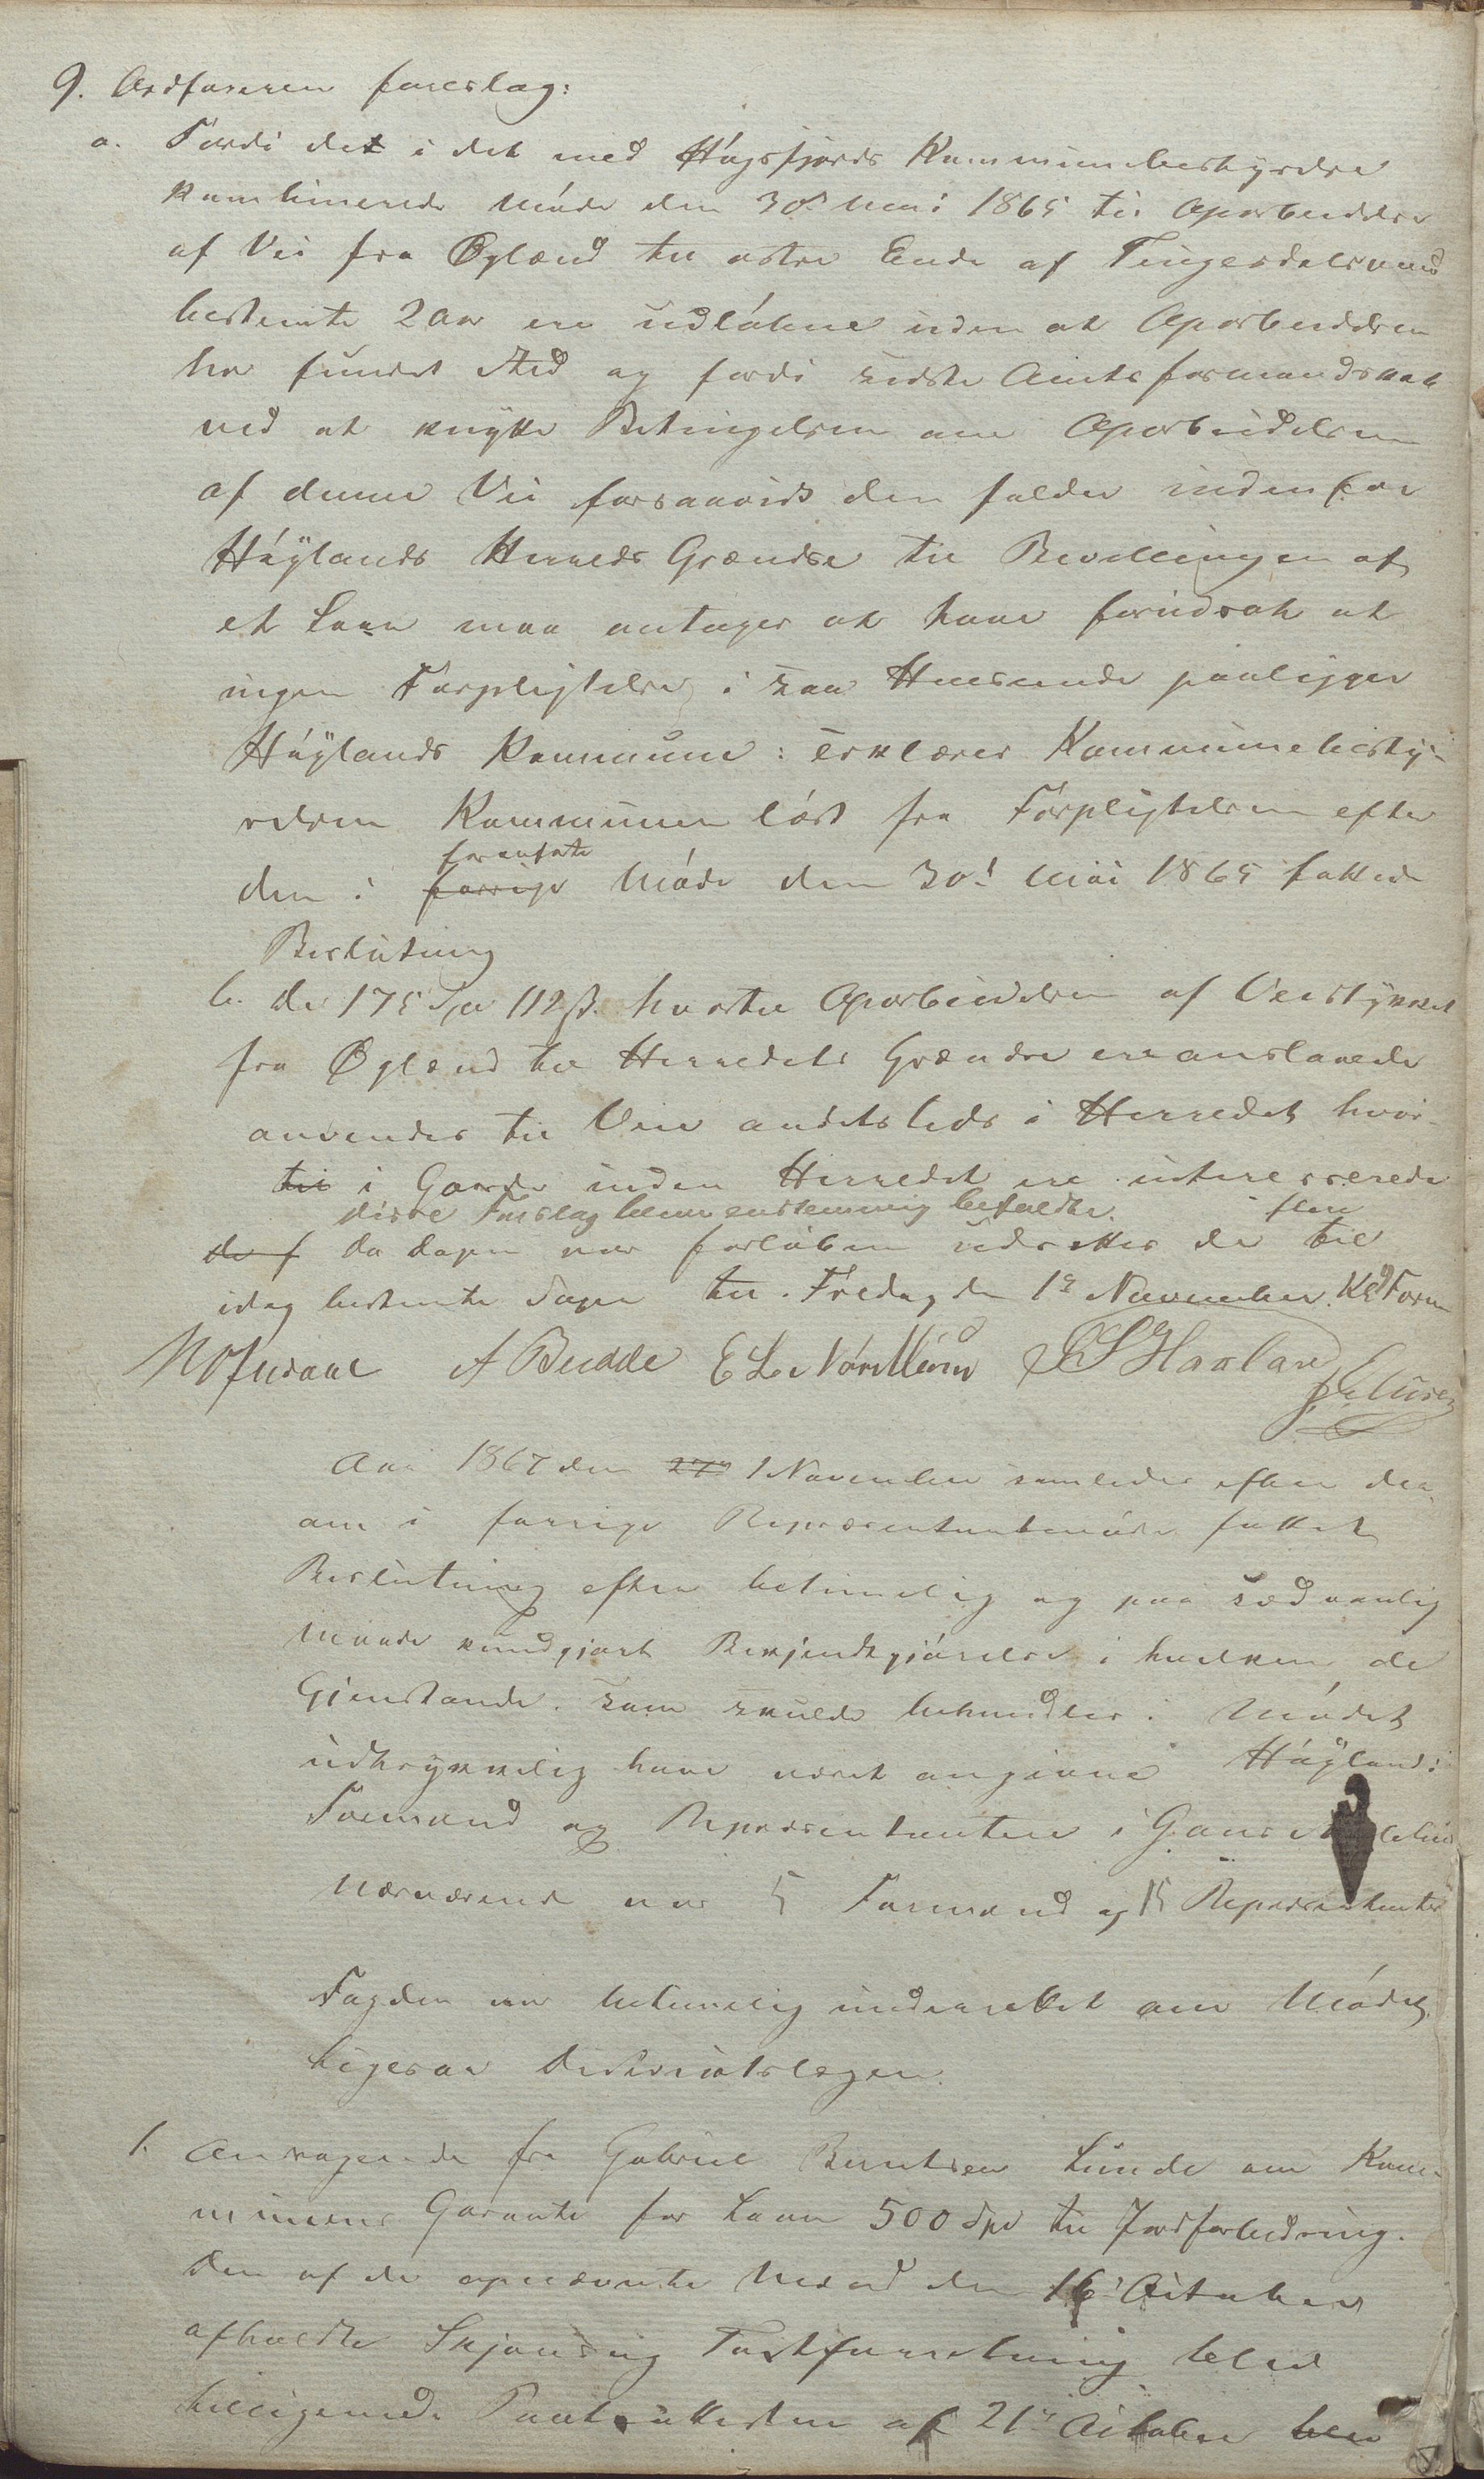 9. Ordføreren foreslog:
a. Fordi det i det med Høgsfjords Kommunebestyrelse
kombinerede Møde den 30te Mai 1865 til Oparbeidelse
af Vei fra Øglænd til østre Ende af Tingesdalsvand
bestemte 2 Aar ere udløbne uden at Oparbeidelsen
har fundet Sted og fordi sidste Amtsformandskab
ved at knytte Betingelsen om Oparbeidelsen
af denne Vei forsaavidt den falder indenfor
Høylands Herreds Grændse til Bevillingen af
et Laan maa antages at have forudsat at
ingen Forpligtelse i saa Henseende paaligger
Høylands Kommune: erklærer Kommunebesty-
relsen Kommunen løst fra Forpligtelsen efter
den i forrige foromtalte Møde den 30te Mai 1865 fattede
Beslutning
b. De 175 Spd 112 ß. hvortil Oparbeidelsen af Veistykket
fra Øglænd til Herredets Grændse ere anslaaede
anvendes til Veie andetsteds i Herredet hvor-
til i Gaarde inden Herredet ere interesserede
disse Forslag bleve enstemmig bifaldte. flere
de f Da Dagen var forløben udsættes de til
idag bestemte Sager til Fredag den 1e November Kl 9 Form
A Budde
Aar 1867 den 27de 1 November samledes efter der-
om i forrige Repræsentantmøde fattet
Beslutning efter betimelig og paa sædvanlig
Maade kundgjort Bekjendtgjørelse i hvilken de
Gjenstande som skulde behandles i Mødet
udtrykkelig have været angivne Høylands
Formænd og Repræsentanter i
Nærværende var 5 Formænd og 15 Repræsentanter
Fogden var betimelig underrettet om Mødet
ligesaa Distriktslægen.
1. Andragende fra Gabriel Berntsen Lunde om Kom-
munens Garanti for Laan 500 Spd til Jordforbedring.
Den af de opnævnte Mænd den 16 Oktober
afholdte Skjøns og Taxtforretning blev
tilligemed Pantattesten af 21de Oktober blev